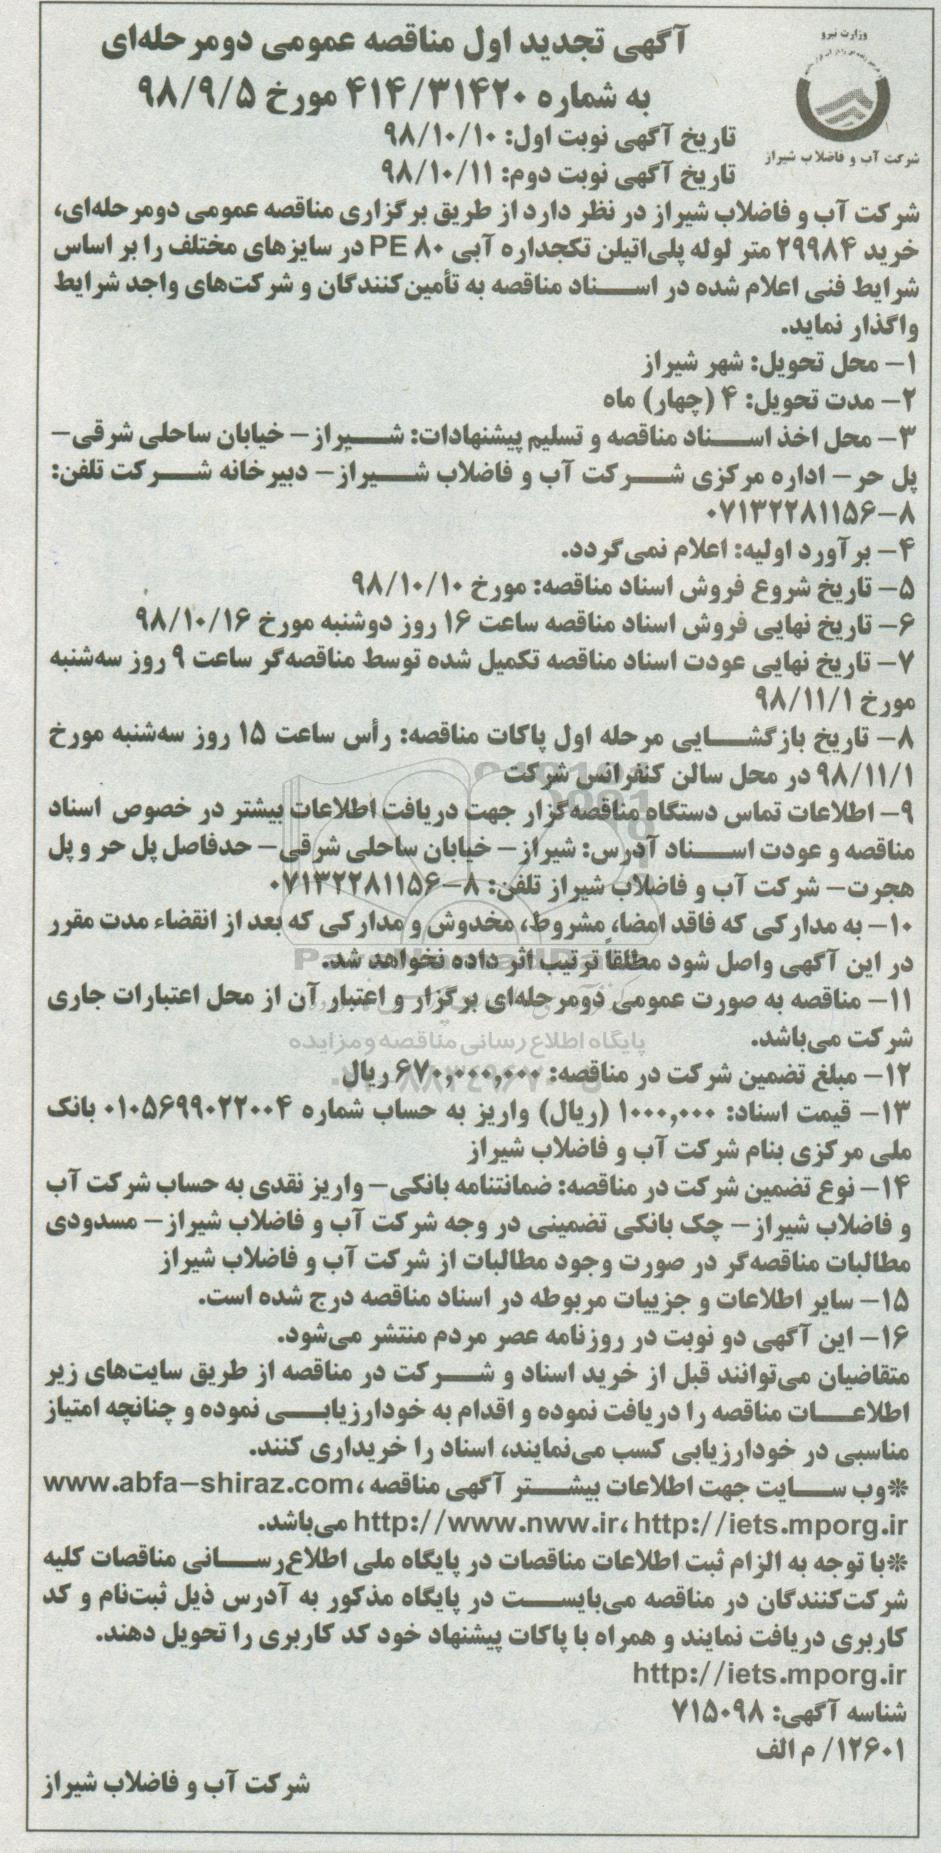 وزارت نیرو
شرکت آب و فاضلاب شیراز
آگهی تجدید اول مناقصه عمومی دومرحله‌ای
به شماره ۴۱۴/۳۱۴۲۰ مورخ ۹۸/۹/۵
تاریخ آگهی نوبت اول: ۹۸/۱۰/۱۰
تاریخ آگهی نوبت دوم: ۹۸/۱۰/۱۱
شرکت آب و فاضلاب شیراز در نظر دارد از طریق برگزاری مناقصه عمومی دومرحله‌ای،
خرید ۲۹۹۸۴ متر لوله پلی‌اتیلن تکجداره آبی PE ۸۰ در سایزهای مختلف را بر اساس
شرایط فنی اعلام شده در اسناد مناقصه به تأمین‌کنندگان و شرکت‌های واجد شرایط
واگذار نماید.
۱- محل تحویل: شهر شیراز
۲- مدت تحویل: ۴ (چهار) ماه
۳- محل اخذ اسناد مناقصه و تسلیم پیشنهادات: شیراز- خیابان ساحلی شرقی-
پل حر- اداره مرکزی شرکت آب و فاضلاب شیراز- دبیرخانه شرکت تلفن:
۰۷۱۳۲۲۸۱۱۵۶-۸
۴- برآورد اولیه: اعلام نمی‌گردد.
۵- تاریخ شروع فروش اسناد مناقصه: مورخ ۹۸/۱۰/۱۰
۶- تاریخ نهایی فروش اسناد مناقصه ساعت ۱۶ روز دوشنبه مورخ ۹۸/۱۰/۱۶
۷- تاریخ نهایی عودت اسناد مناقصه تکمیل شده توسط مناقصه‌گر ساعت ۹ روز سه‌شنبه
مورخ ۹۸/۱۱/۱
۸- تاریخ بازگشایی مرحله اول پاکات مناقصه: رأس ساعت ۱۵ روز سه‌شنبه مورخ
۹۸/۱۱/۱ در محل سالن کنفرانس شرکت
۹- اطلاعات تماس دستگاه مناقصه‌گزار جهت دریافت اطلاعات بیشتر در خصوص اسناد
مناقصه و عودت اسناد آدرس: شیراز- خیابان ساحلی شرقی- حدفاصل پل حر و پل
هجرت- شرکت آب و فاضلاب شیراز تلفن: ۸-۰۷۱۳۲۲۸۱۱۵۶
۱۰- به مدارکی که فاقد امضا، مشروط، مخدوش و مدارکی که بعد از انقضاء مدت مقرر
در این آگهی واصل شود مطلقاً ترتیب اثر داده نخواهد شد.
۱۱- مناقصه به صورت عمومی دومرحله‌ای برگزار و اعتبار آن از محل اعتبارات جاری
شرکت می‌باشد.
پایگاه اطلاع رسانی مناقصه و مزایده
۱۲- مبلغ تضمین شرکت در مناقصه: ۶۷۰,۰۰۰,۰۰۰ ریال
۱۳- قیمت اسناد: ۱۰۰۰,۰۰۰ (ریال) واریز به حساب شماره ۰۱۰۵۶۹۹۰۲۲۰۰۴ بانک
ملی مرکزی بنام شرکت آب و فاضلاب شیراز
۱۴- نوع تضمین شرکت در مناقصه: ضمانتنامه بانکی- واریز نقدی به حساب شرکت آب
و فاضلاب شیراز- چک بانکی تضمینی در وجه شرکت آب و فاضلاب شیراز- مسدودی
مطالبات مناقصه‌گر در صورت وجود مطالبات از شرکت آب و فاضلاب شیراز
۱۵- سایر اطلاعات و جزییات مربوطه در اسناد مناقصه درج شده است.
۱۶- این آگهی دو نوبت در روزنامه عصر مردم منتشر می‌شود.
متقاضیان می‌توانند قبل از خرید اسناد و شرکت در مناقصه از طریق سایت‌های زیر
اطلاعات مناقصه را دریافت نموده و اقدام به خودارزیابی نموده و چنانچه امتیاز
مناسبی در خودارزیابی کسب می‌نمایند، اسناد را خریداری کنند.
*وب سایت جهت اطلاعات بیشتر آگهی مناقصه، www.abfa-shiraz.com
http://www.nww.ir، http://iets.mporg.ir می‌باشد.
*با توجه به الزام ثبت اطلاعات مناقصات در پایگاه ملی اطلاع‌رسانی مناقصات کلیه
شرکت‌کنندگان در مناقصه می‌بایست در پایگاه مذکور به آدرس ذیل ثبت‌نام و کد
کاربری دریافت نمایند و همراه با پاکات پیشنهاد خود کد کاربری را تحویل دهند.
http://iets.mporg.ir
شناسه آگهی: ۷۱۵۰۹۸
۱۲۶۰۱/ م الف
شرکت آب و فاضلاب شیراز